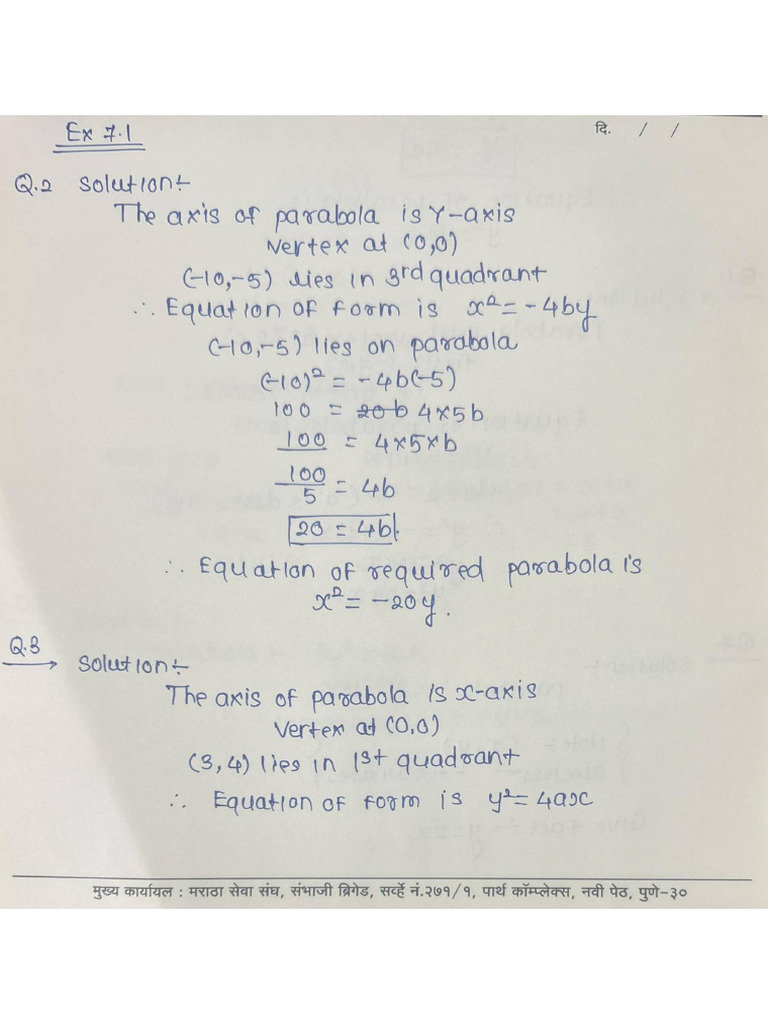 Ex 7.1
दि. / /
Q.2 Solution:-
The axis of parabola is Y-axis
Vertex at (0,0)
(-10,-5) lies in 3rd quadrant
∴ Equation of form is x² = -4by
(-10,-5) lies on parabola
(-10)² = -4b(-5)
100 = 20b 4×5b
100 = 4×5×b
100/5 = 4b
20 = 4b
∴ Equation of required parabola is
x² = -20y.
Q.3
→ Solution:-
The axis of parabola is x-axis
Vertex at (0,0)
(3,4) lies in 1st quadrant
∴ Equation of form is y² = 4ax
मुख्य कार्यायल : मराठा सेवा संघ, संभाजी ब्रिगेड, सर्व्हे नं.२७१/१, पार्थ कॉम्प्लेक्स, नवी पेठ, पुणे-३०